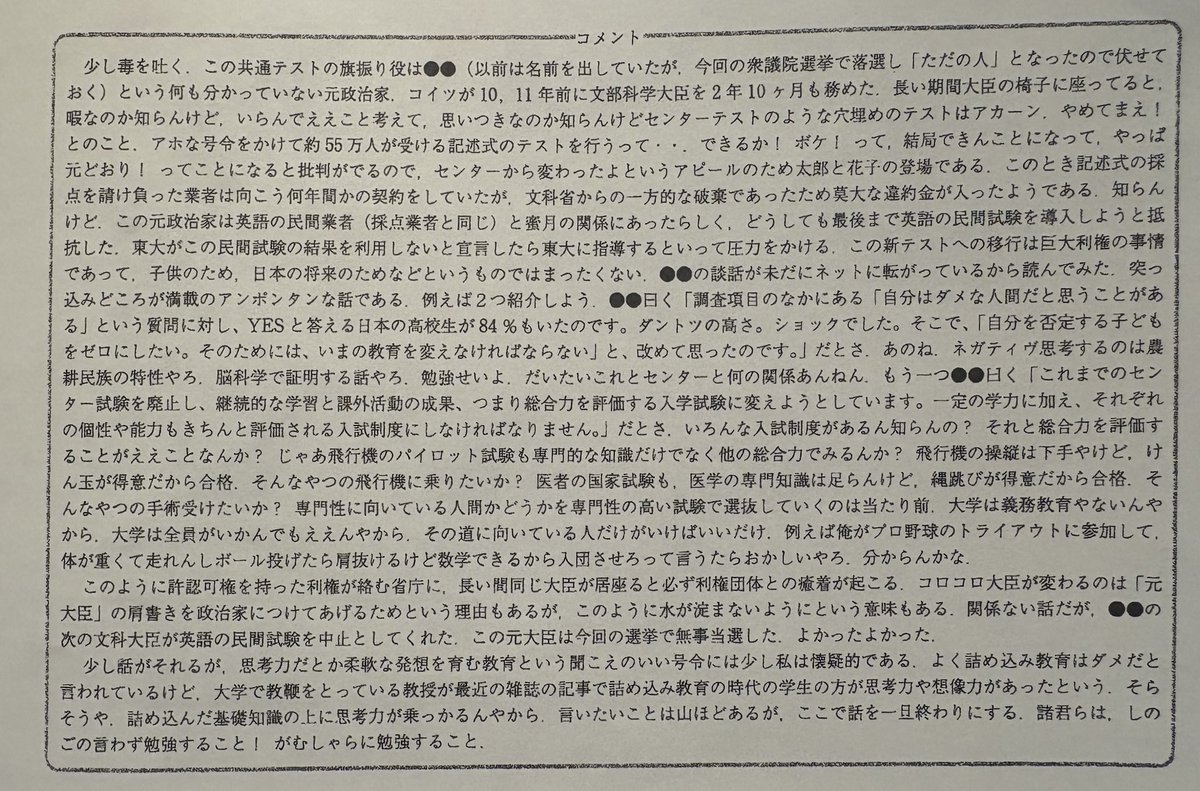 コメント
少し毒を吐く．この共通テストの旗振り役は●●（以前は名前を出していたが，今回の衆議院選挙で落選し「ただの人」となったので伏せて
おく）という何も分かっていない元政治家．コイツが10，11年前に文部科学大臣を2年10ヶ月も務めた．長い期間大臣の椅子に座ってると，
暇なのか知らんけど，いらんでええこと考えて，思いつきなのか知らんけどセンターテストのような穴埋めのテストはアカーン．やめてまえ！
とのこと．アホな号令をかけて約55万人が受ける記述式のテストを行うって・・．できるか！ ボケ！ って，結局できんことになって，やっぱ
元どおり！ ってことになると批判がでるので，センターから変わったよというアピールのため太郎と花子の登場である．このとき記述式の採
点を請け負った業者は向こう何年間かの契約をしていたが，文科省からの一方的な破棄であったため莫大な違約金が入ったようである．知らん
けど．この元政治家は英語の民間業者（採点業者と同じ）と蜜月の関係にあったらしく，どうしても最後まで英語の民間試験を導入しようと抵
抗した．東大がこの民間試験の結果を利用しないと宣言したら東大に指導するといって圧力をかける．この新テストへの移行は巨大利権の事情
であって，子供のため，日本の将来のためなどというものではまったくない．●●の談話が未だにネットに転がっているから読んでみた．突っ
込みどころが満載のアンポンタンな話である．例えば2つ紹介しよう．●●曰く「調査項目のなかにある「自分はダメな人間だと思うことがあ
る」という質問に対し、YESと答える日本の高校生が84％もいたのです。ダントツの高さ。ショックでした。そこで、「自分を否定する子ども
をゼロにしたい。そのためには、いまの教育を変えなければならない」と、改めて思ったのです。」だとさ．あのね．ネガティヴ思考するのは農
耕民族の特性やろ．脳科学で証明する話やろ．勉強せいよ．だいたいこれとセンターと何の関係あんねん．もう一つ●●曰く「これまでのセン
ター試験を廃止し、継続的な学習と課外活動の成果、つまり総合力を評価する入学試験に変えようとしています。一定の学力に加え、それぞれ
の個性や能力もきちんと評価される入試制度にしなければなりません。」だとさ．いろんな入試制度があるん知らんの？ それと総合力を評価す
ることがええことなんか？ じゃあ飛行機のパイロット試験も専門的な知識だけでなく他の総合力でみるんか？ 飛行機の操縦は下手やけど，け
ん玉が得意だから合格．そんなやつの飛行機に乗りたいか？ 医者の国家試験も，医学の専門知識は足らんけど，縄跳びが得意だから合格．そ
んなやつの手術受けたいか？ 専門性に向いている人間かどうかを専門性の高い試験で選抜していくのは当たり前．大学は義務教育やないんや
から．大学は全員がいかんでもええんやから．その道に向いている人だけがいけばいいだけ．例えば俺がプロ野球のトライアウトに参加して，
体が重くて走れんしボール投げたら肩抜けるけど数学できるから入団させろって言うたらおかしいやろ．分からんかな．
このように許認可権を持った利権が絡む省庁に，長い間同じ大臣が居座ると必ず利権団体との癒着が起こる．コロコロ大臣が変わるのは「元
大臣」の肩書きを政治家につけてあげるためという理由もあるが，このように水が淀まないようにという意味もある．関係ない話だが，●●の
次の文科大臣が英語の民間試験を中止としてくれた．この元大臣は今回の選挙で無事当選した．よかったよかった．
少し話がそれるが，思考力だとか柔軟な発想を育む教育という聞こえのいい号令には少し私は懐疑的である．よく詰め込み教育はダメだと
言われているけど，大学で教鞭をとっている教授が最近の雑誌の記事で詰め込み教育の時代の学生の方が思考力や想像力があったという．そら
そうや．詰め込んだ基礎知識の上に思考力が乗っかるんやから．言いたいことは山ほどあるが，ここで話を一旦終わりにする．諸君らは，しの
ごの言わず勉強すること！ がむしゃらに勉強すること．